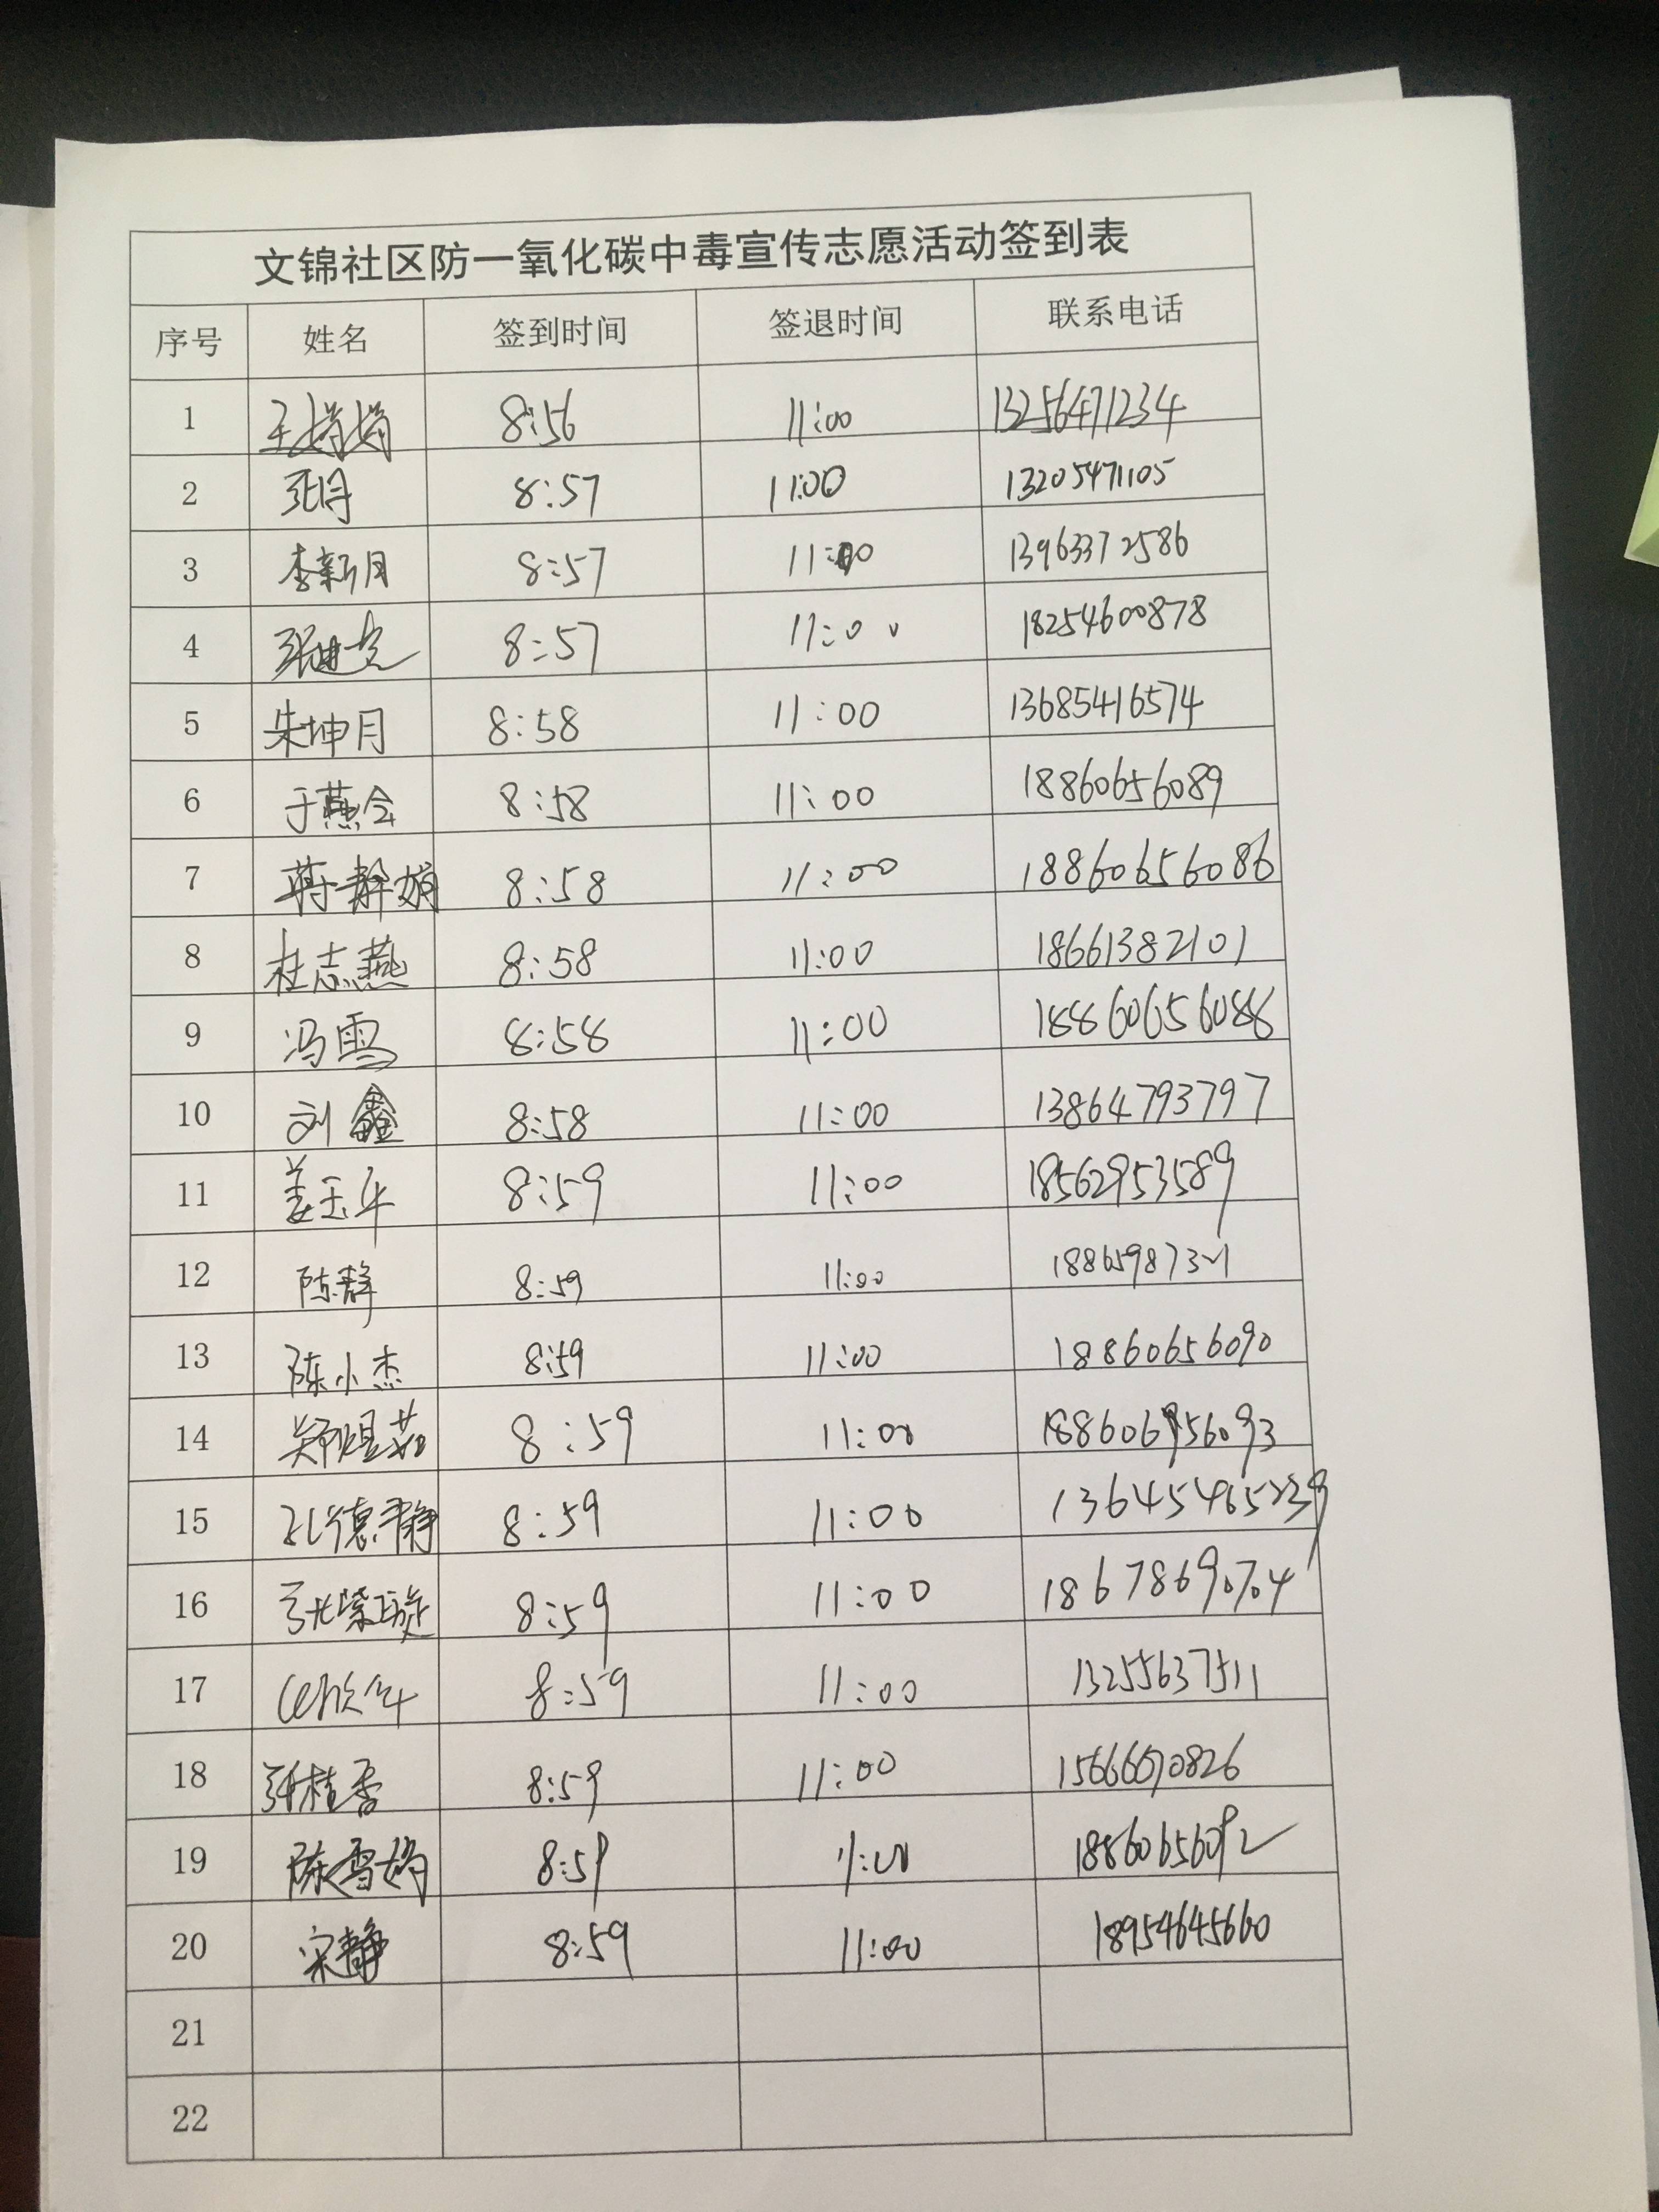 文锦社区防一氧化碳中毒宣传志愿活动签到表
序号 姓名 签到时间 签退时间 联系电话
1 王娟娟 8:56 11:00 13256471234
2 张月 8:57 11:00 13205471105
3 李新月 8:57 11:00 13963372586
4 8:57 11:00 18254600878
5 朱坤月 8:58 11:00 13685416574
6 于燕会 8:58 11:00 18860656089
7 蒋静娟 8:58 11:00 18860656086
8 杜志燕 8:58 11:00 18661382101
9 冯雪 8:58 11:00 18860656088
10 刘鑫 8:58 11:00 13864793797
11 姜玉华 8:59 11:00 18562953589
12 陈静 8:59 11:00 18865987321
13 陈小杰 8:59 11:00 18860656090
14 郑煜茹 8:59 11:00
15 孔德静 8:59 11:00 13645465239
16 张紫璇 8:59 11:00 18678690704
17 8:59 11:00 13255637511
18 张桂香 8:59 11:00
19 陈雪娟 8:59 11:00 18860656092
20 宋静 8:59 11:00 18954645660
21
22